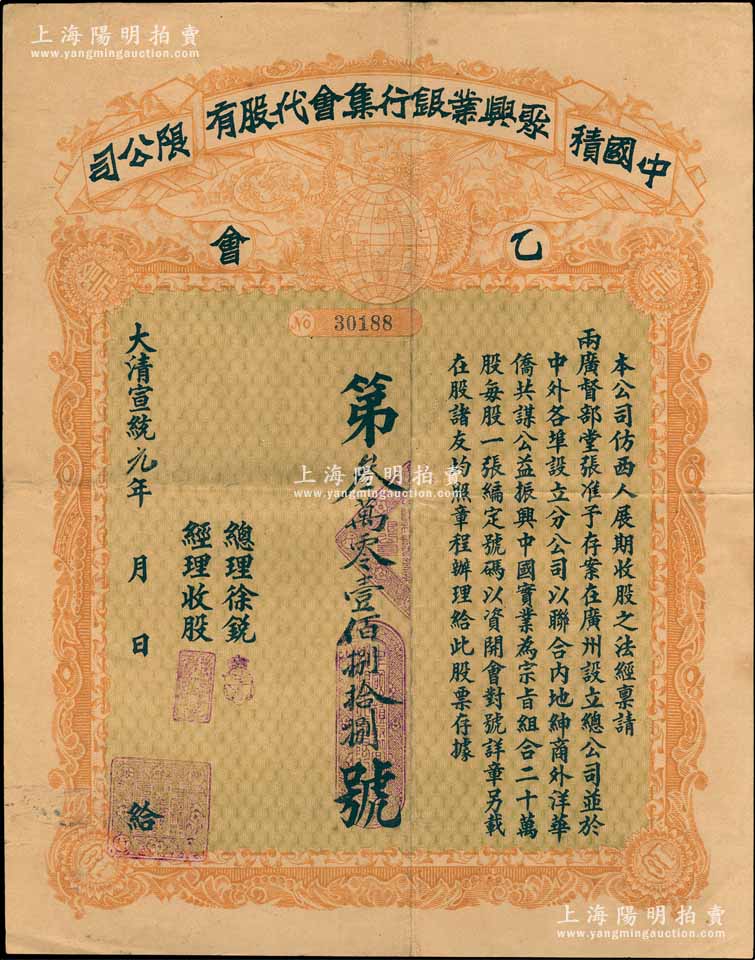 上海陽明拍賣
www.yangmingauction.com
上海陽明拍賣
www.yangmingauction.com
中國積聚興業銀行集會代股有限公司
乙會
No 30188
本公司仿西人展期收股之法經稟請
兩廣督部堂張准予存案在廣州設立總公司並於
中外各埠設立分公司以聯合內地紳商外洋華
僑共謀公益振興中國實業為宗旨組合二十萬
股每股一張編定號碼以資開會對號詳章另載
在股諸友約照章程辦理給此股票存據
第叁萬零壹佰捌拾捌號
總理徐銳
經理收股
大清宣統元年 月 日 給
上海陽明拍賣
www.yangmingauction.com
上海陽明拍賣
www.yangmingauction.com